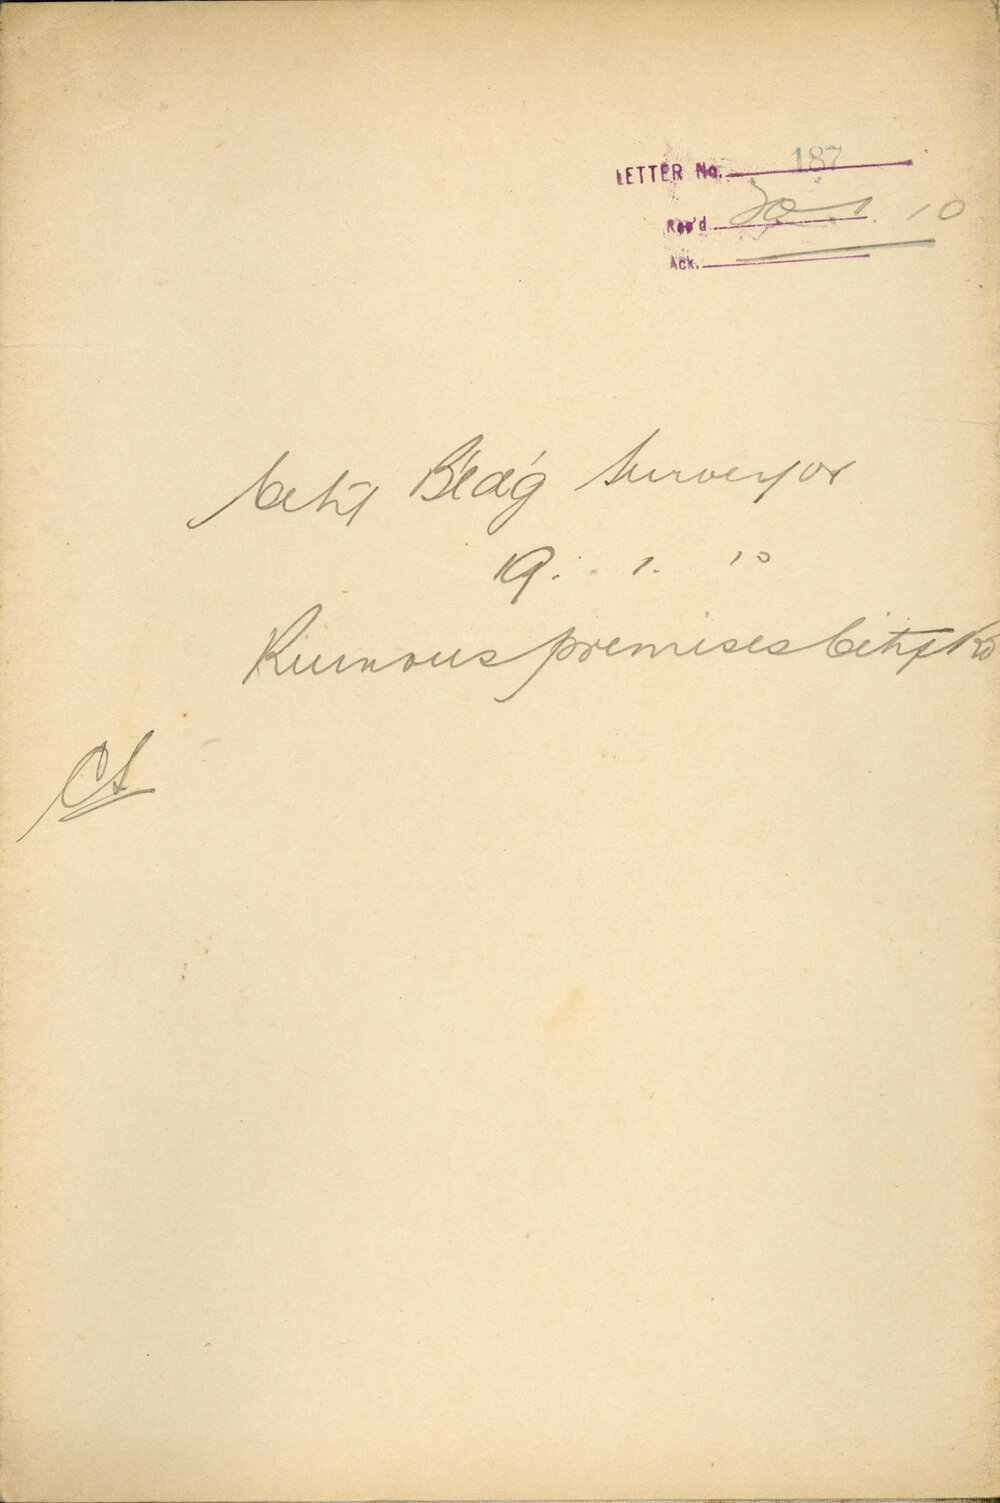 LETTER No. 187
Rec'd 20. 1. 10
Ack.
City Bld'g Surveyor
19. 1. 10
Ruinous premises City Rd
CS